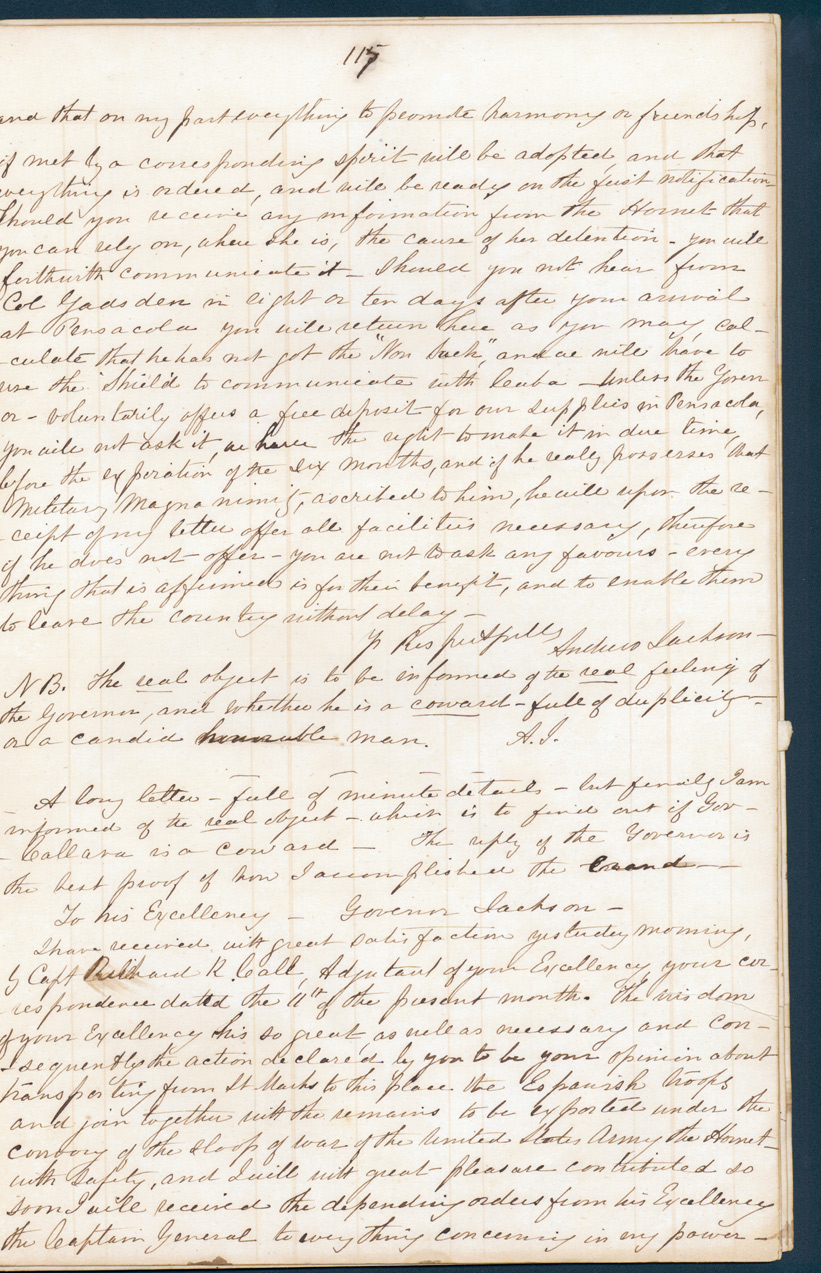 115
and that on my part everything to promote harmony or friendship,
if met by a corresponding spirit will be adopted and that
everything is ordered, and will be ready on the first notification
Should you receive any information from the Hornet that
you can rely on, where she is, the cause of her detention - you will
forthwith communicate it - Should you not hear from
Col Gadsden in eight or ten days after your arrival
at Pensacola you will return here as you may, cal-
-culate that he has not got the "Non Such", and we will have to
use the Shield to communicate with Cuba - Unless the Govern
or - voluntarily offers a free deposit for our supplies in Pensacola,
you will not ask it, we have the right to make it in due time,
before the expiration of the six months, and if he really possesses that
Military Magnanimity, ascribed to him, he will upon the re-
-ceipt of my letter offer all facilities necessary, therefore
if he does not offer - you are not to ask any favours - every
thing that is affirmed is for their benefit, and to enable them
to leave the country without delay -
Yr Respectfully Andrew Jackson -
NB. The real object is to be informed of the real feeling of
the Governor, and whether he is a coward - full of duplicity -
or a candid honourable man. A.J.
A long letter - full of minute details - but finally I am
informed of the real object - which is to find out if Gov-
- Callava is a coward - The reply of the Governor is
the best proof of how I accomplished the errand -
To his Excellency - Govenor Jackson -
I have received with great satisfaction yesterday morning,
by Capt Richard K. Call, Adjutant of your Excellency, your cor-
-respondence dated the 11th of the present month. The wisdom
of your Excellency his so great as well as necessary and con-
-sequently the action declared by you to be your opinion about
transporting from St Marks to this place the Espanish troops
and join together with the remains to be exported under the
convoy of the sloop of war of the United States Army the Hornet
with safety, and I will with great pleasure contributed so
soon I will received the depending orders from his Excellency
the Captain General to everything concerning in my power -